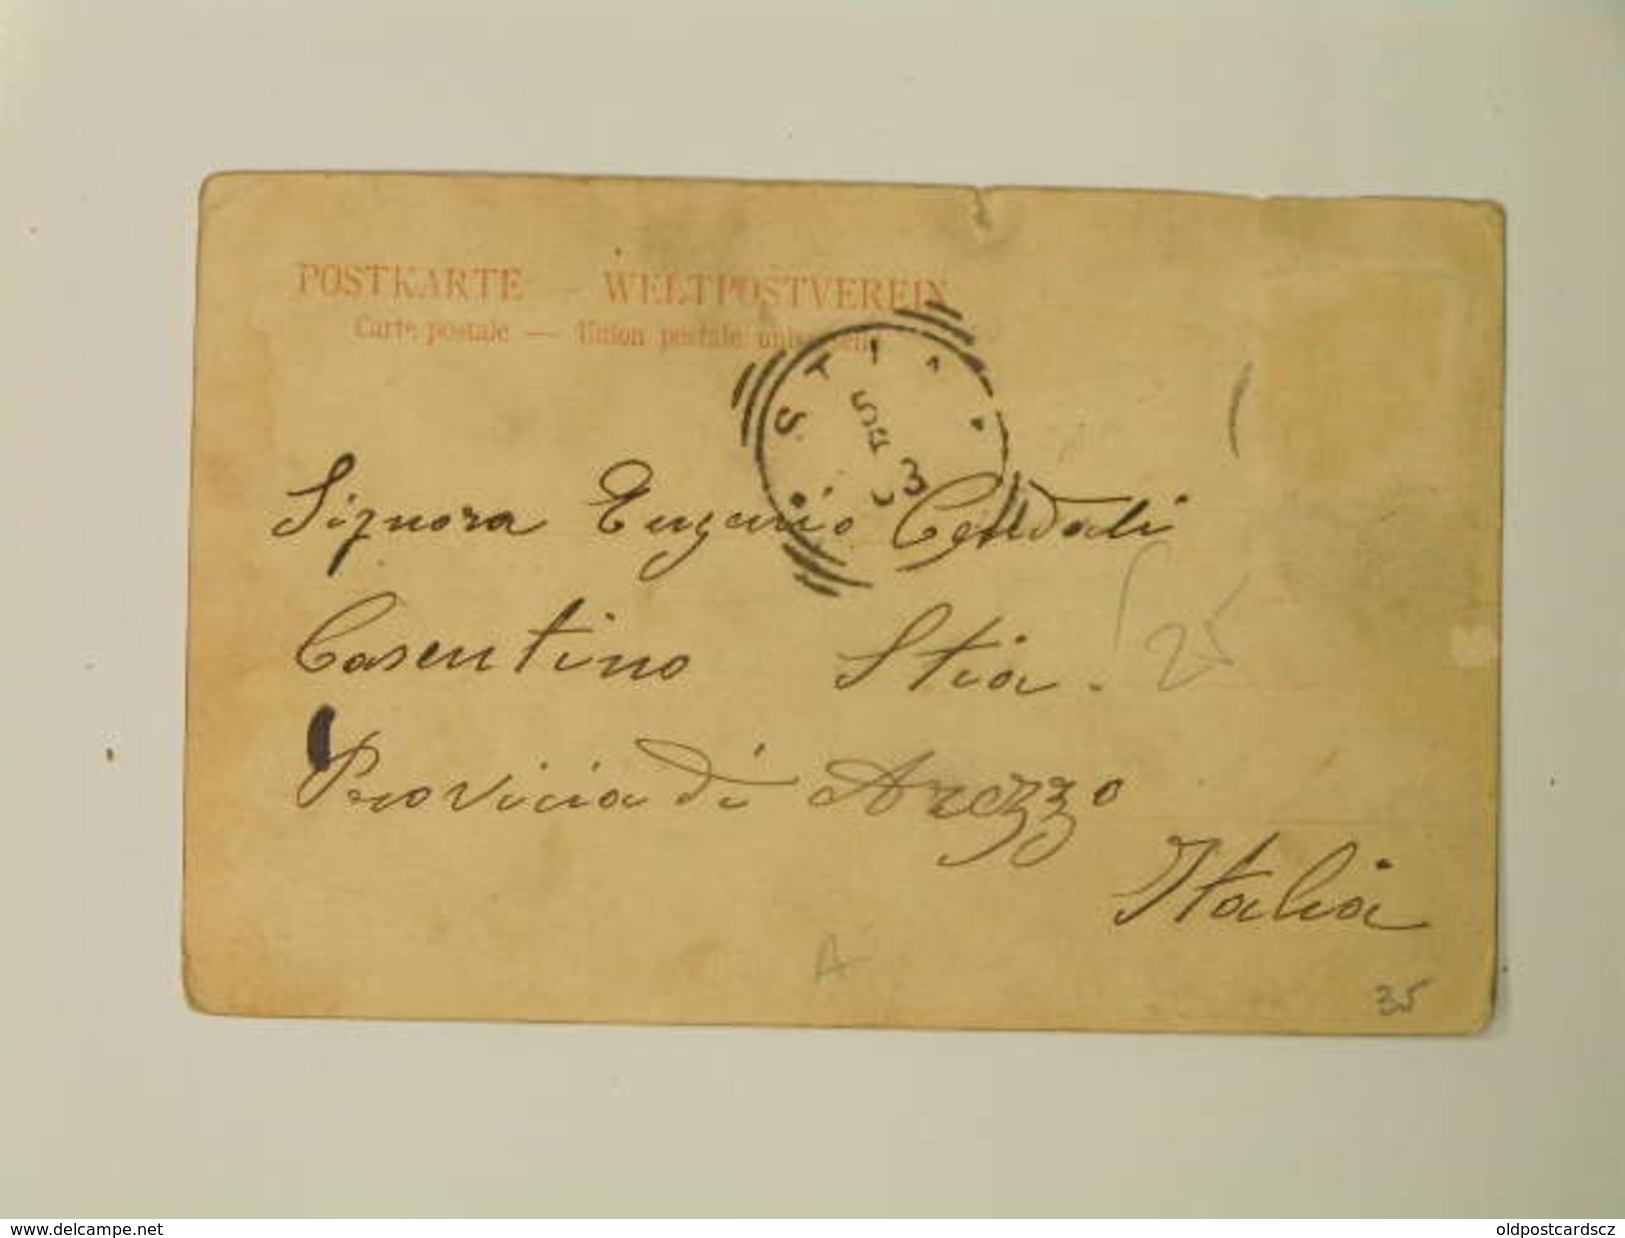 POSTKARTE — WELTPOSTVEREIN
Carte postale — Union postale universelle
STIA
03
Signora Eugenia Cendali
Casentino Stia.
25
Provicia di Arezzo
Italia
A
35
delcampe.net
oldpostcardscz